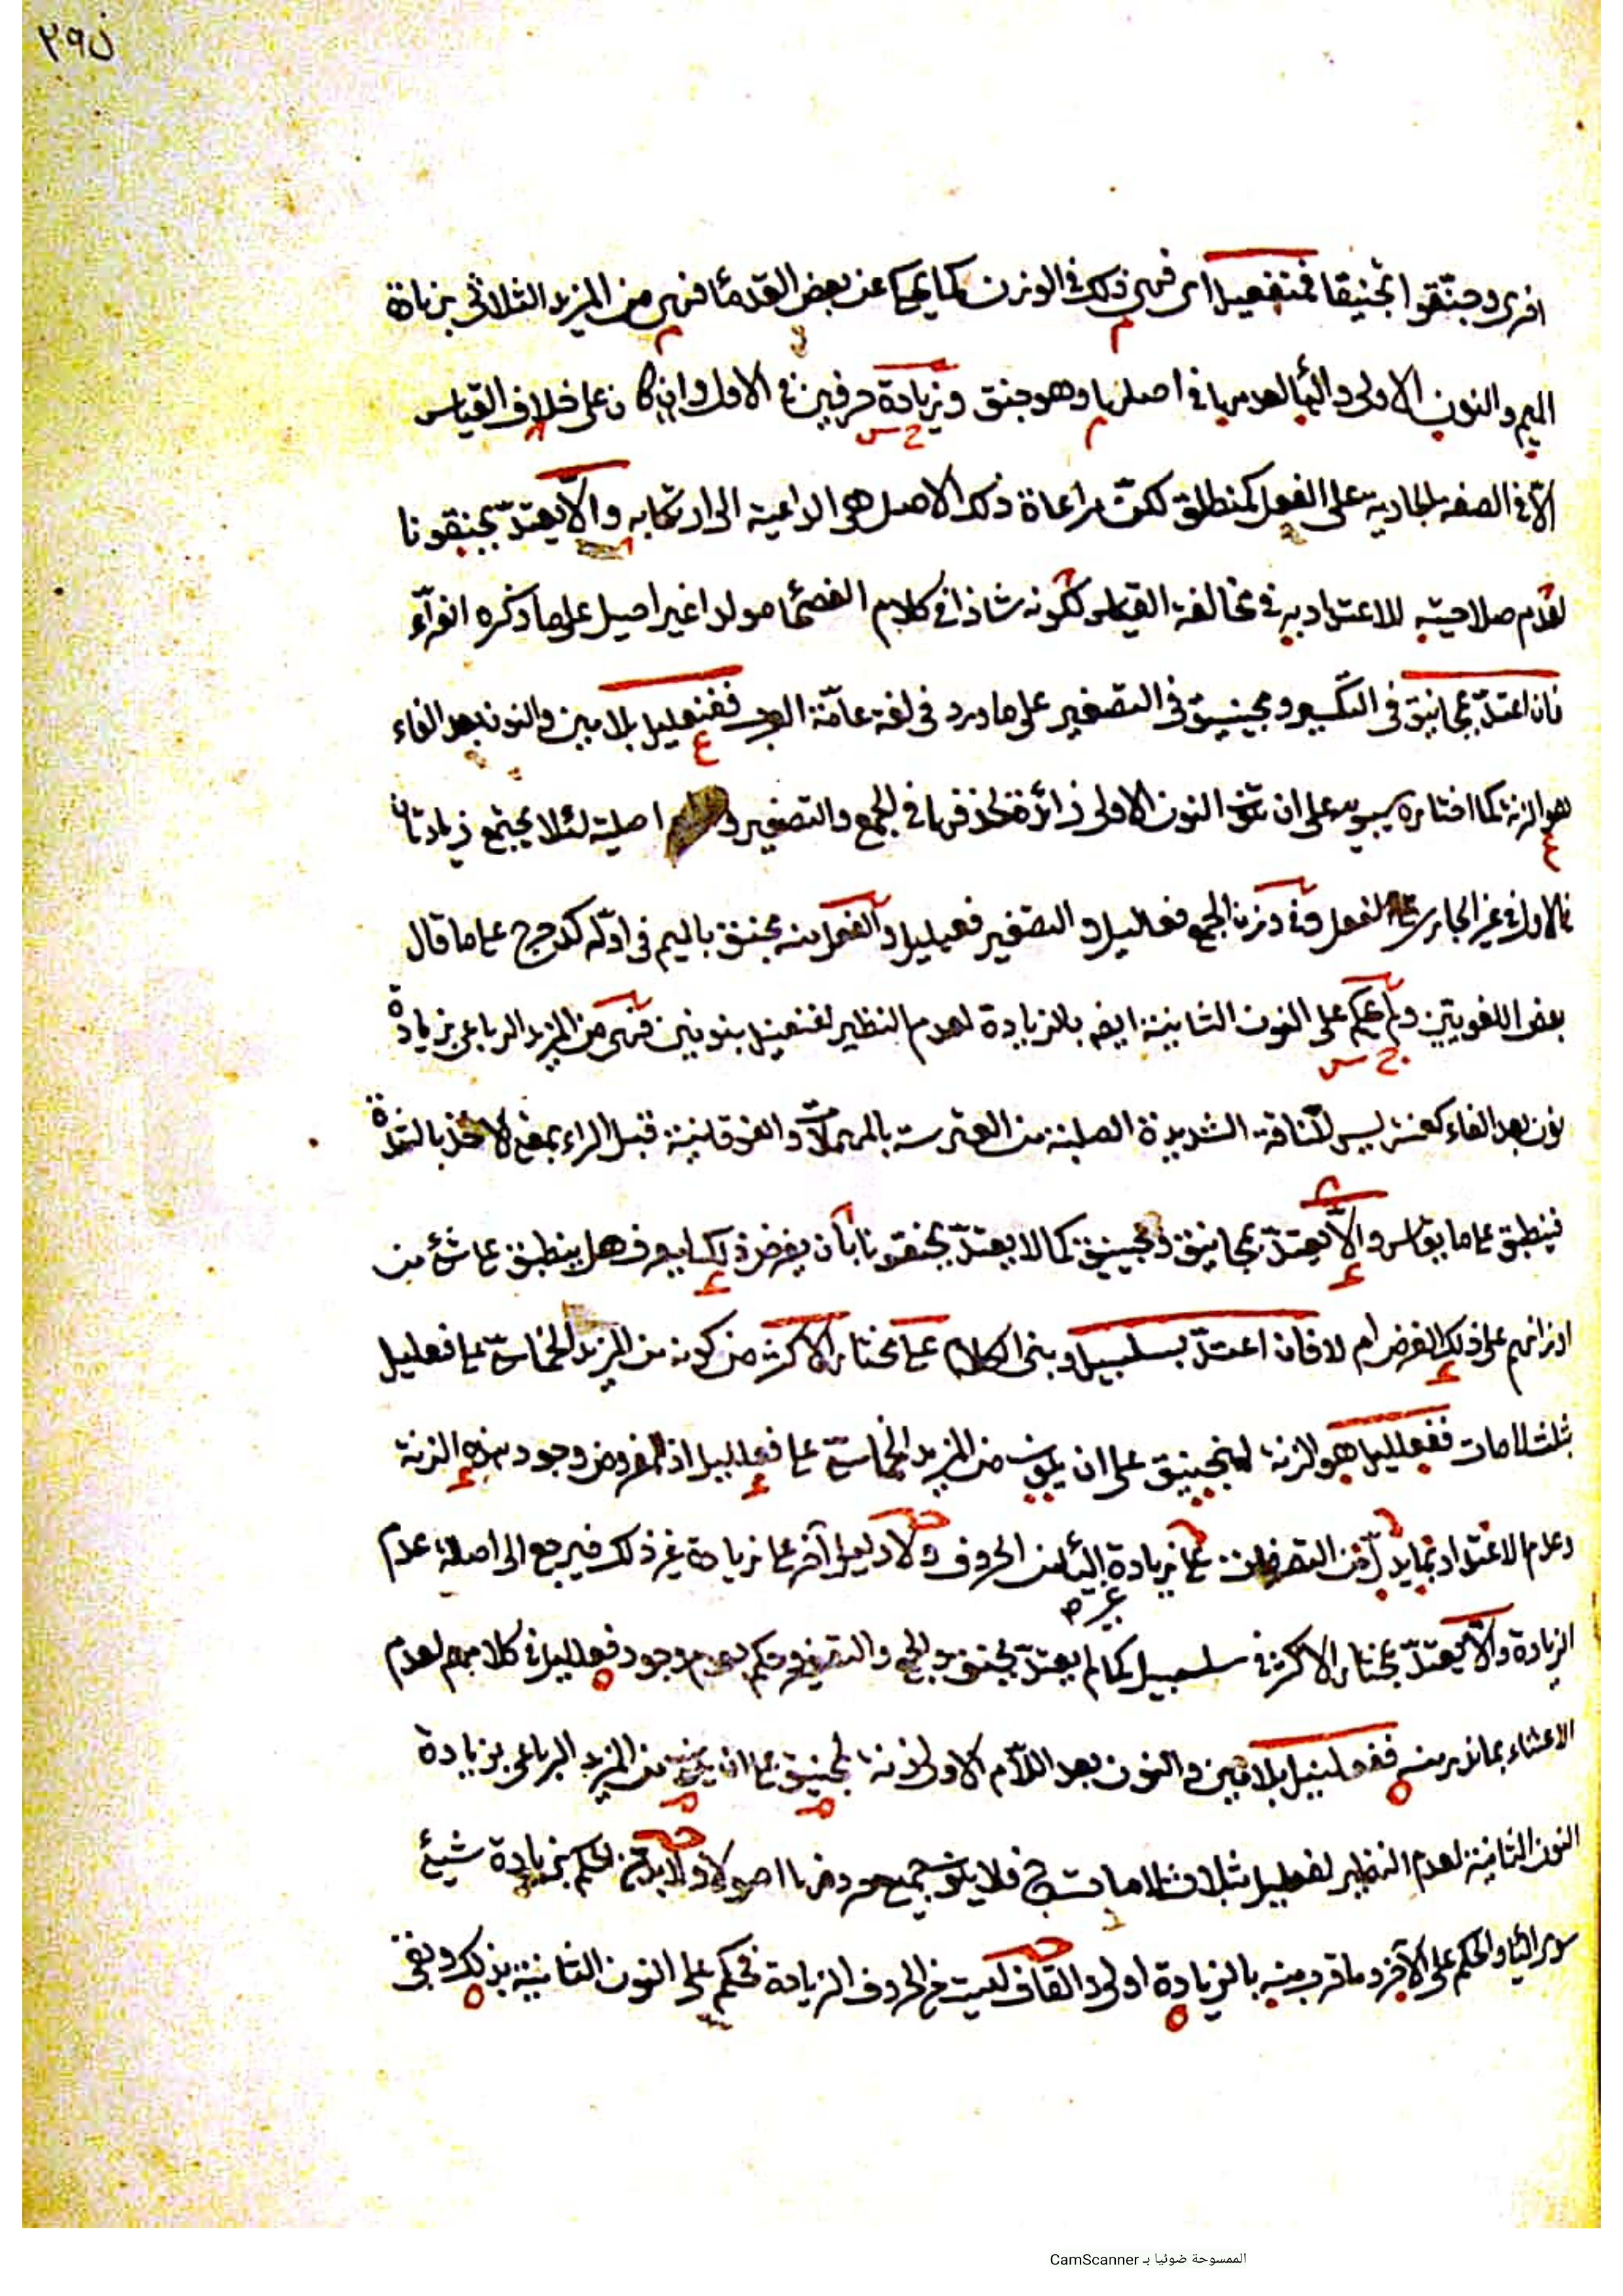 ن ٢٩
اخرى وجنقوا مجنيقا فمنفعيل اى فهى ذلك فى الوزن كما يحكى عن بعض القدماء فهى من المزيد الثلاثى بزيادة
الميم والنون الاولى والياء لعدمها فى اصلها وهو جنق وزيادة حرفين فى الاول وان كان على خلاف القياس
الا فى الصفة الجارية على الفعل كمنطلق لكن مراعاة ذلك الاصل هى الداعية الى ارتكابه والا يعتد بجنقونا
لعدم صلاحيته للاعتداد به فى مخالفة القياس لكونه شاذا فى كلام الفصحاء مولدا غير اصيل على ما ذكره الفراء
فان اعتد بمجانيق فى التكسير ومجينيق فى التصغير على ما ورد فى لغة عامة العرب ففنعليل بلامين والنون بعد الفاء
هو الزنة كما اختاره سيبويه على ان تكون النون الاولى زائدة لحذفها فى الجمع والتصغير و اصلية لئلا يجتمع زيادتان
فى الاول فى غير الجارى على الفعل وفى وزن الجمع فعاليل والتصغير فعيليل والفعل منه مجنق بالميم فى اوله كدحرج على ما قال
بعض اللغويين ولم يحكم على النون الثانية ايضا بالزيادة لعدم النظير لفنعنيل بنونين فهى من المزيد الرباعى بزيادة
نون بعد الفاء كعنتريس للناقة الشديدة الصلبة من العترسة بالمهملات والفوقانية قبل الراء بمعنى الاخذ بالشدة
فينطبق على ما يقاس والا يعتد بمجانيق ومجينيق كما لا يعتد بجنقونا بان يفرض ذلك ليعرف هل ينطبق على شئ من
اوزانهم على ذلك الفرض ام لا فان اعتد بسلسبيل وبنى الكلام على مختار الاكثر من كونه من المزيد الخماسى على فعليل
بثلث لامات ففعلليل هو الزنة لمنجنيق على ان يكون من المزيد الخماسى على فعلليل اذ المفروض وجود هذه الزنة
وعدم الاعتداد بما يدل من التصرفات على زيادة الياء من الحروف ولا دليل آخر على زيادة غير ذلك فيرجع الى اصالة عدم
الزيادة والا يعتد بمختار الاكثر فى سلسبيل كما لم يعتد بجنق والجمع والتصغير وحكم بعدم وجود فعلليل فى كلامهم لعدم
الاعتناء بما ندر منه ففعلنيل بلامين والنون بعد اللام الاولى زنة لمنجنيق على ان يكون من المزيد الرباعى بزيادة
النون الثانية لعدم النظير لفعلليل بثلاث لامات ح فلا يكون جميع حروفها اصولا ولا بد من الحكم بزيادة شيئ
سوى الياء والحكم على الآخر وما قرب منه بالزيادة اولى والقاف ليست من الحروف الزيادة فحكم على النون الثانية بذلك وبقى
الممسوحة ضوئيا بـ CamScanner